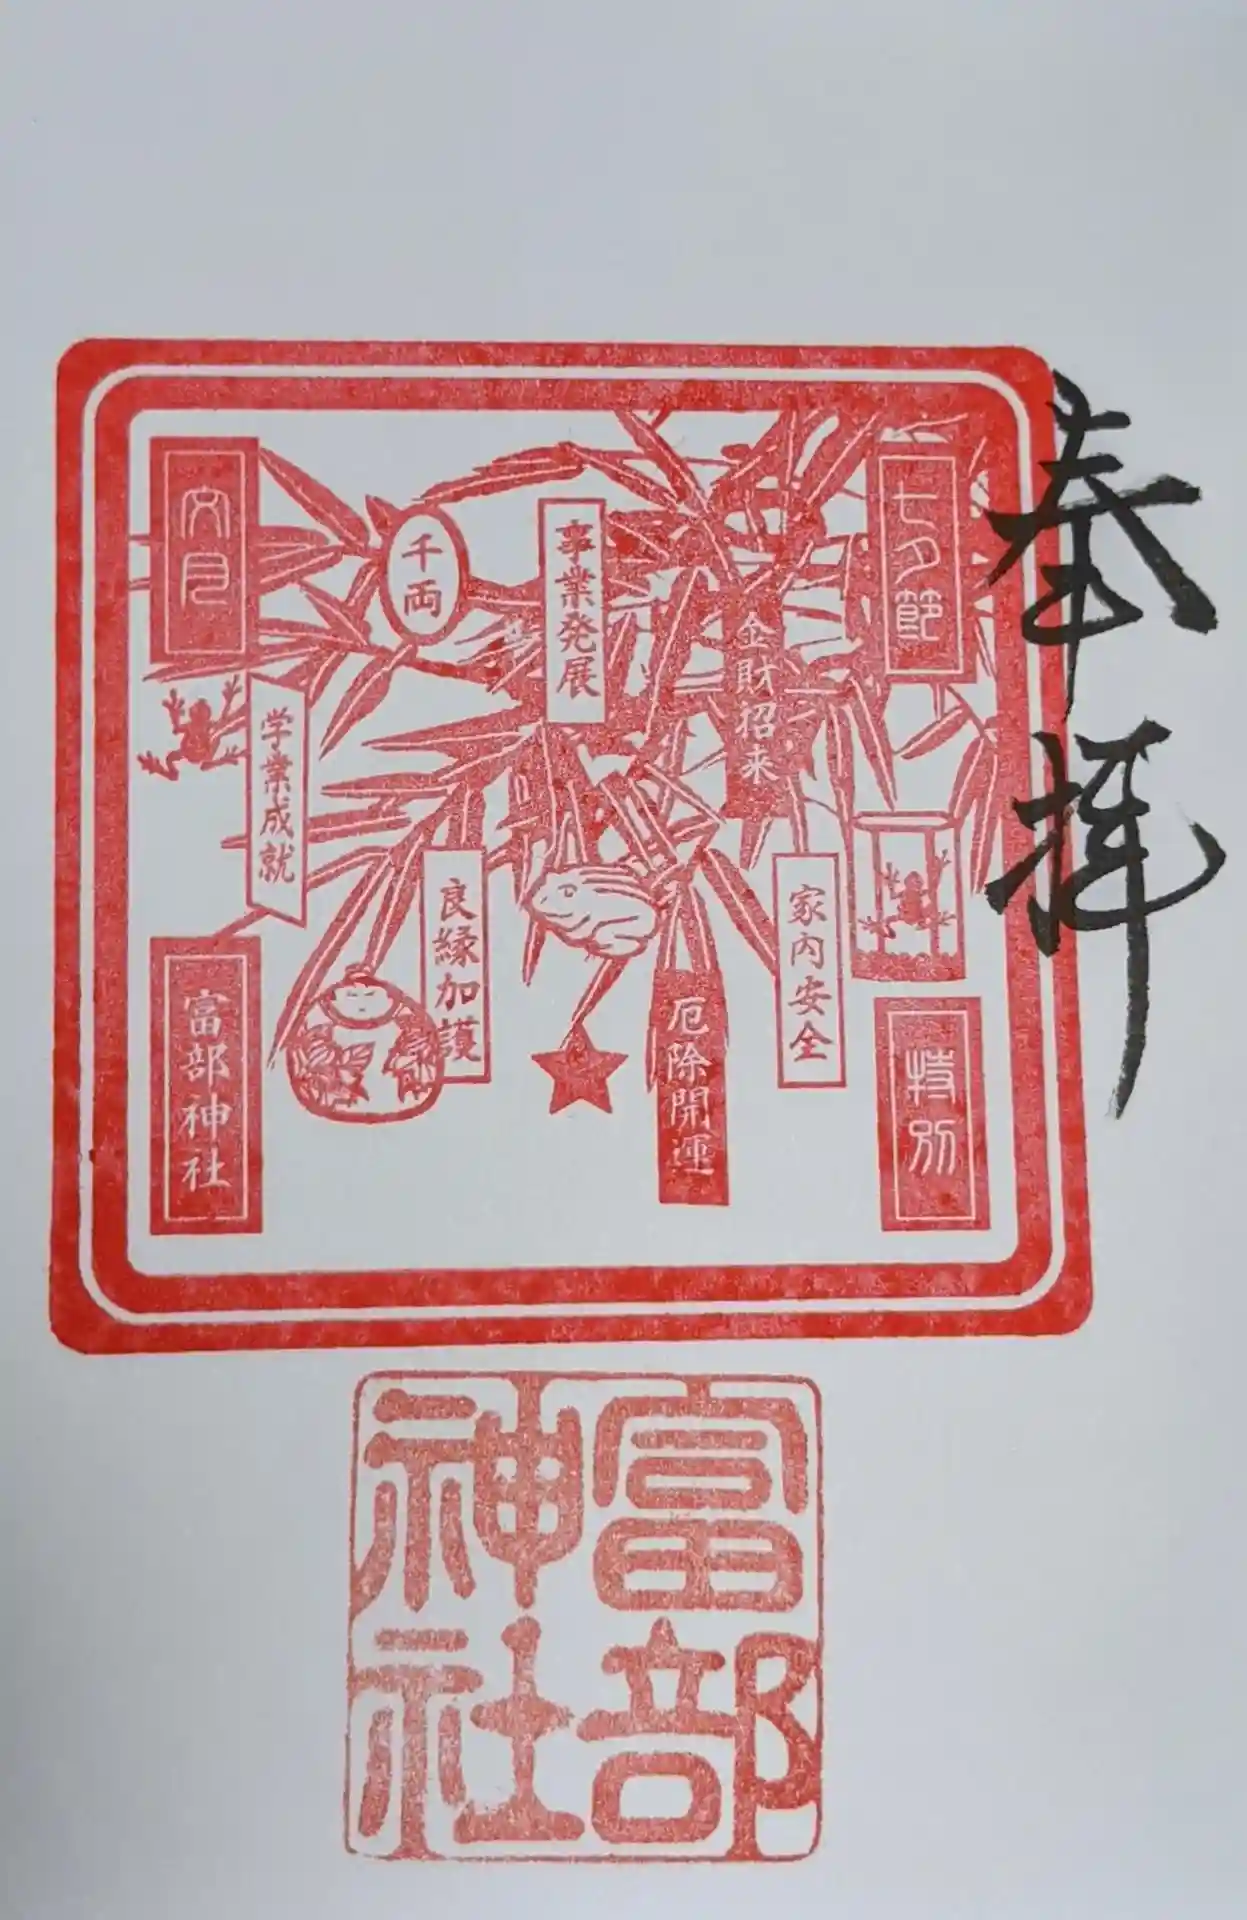 奉拝
七夕節
特別
金財招来
家内安全
厄除開運
事業発展
千両
良縁加護
学業成就
文月
富部神社
富部
神社